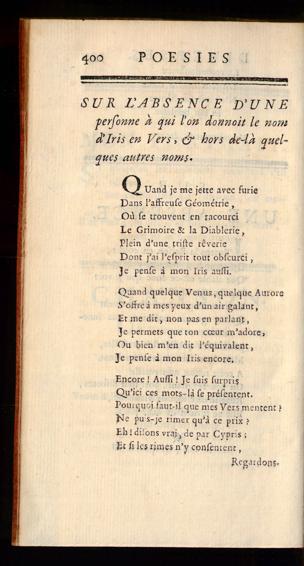 400 POESIES
SUR L'ABSENCE D'UNE
perſonne à qui l'on donnoit le nom
d'Iris en Vers, & hors de-là quel-
ques autres noms.
QUand je me jette avec furie
Dans l'affreuſe Géométrie,
Où ſe trouvent en racourci
Le Grimoire & la Diablerie,
Plein d'une triſte rêverie
Dont j'ai l'eſprit tout obſcurci,
Je penſe à mon Iris auſſi.
Quand quelque Venus, quelque Aurore
S'offre à mes yeux d'un air galant,
Et me dit, non pas en parlant,
Je permets que ton cœur m'adore,
Ou bien m'en dit l'équivalent,
Je penſe à mon Iris encore.
Encore! Auſſi! Je ſuis ſurpris
Qu'ici ces mots-là ſe préſentent.
Pourquoi faut-il que mes Vers mentent?
Ne puis-je rimer qu'à ce prix?
Eh! diſons vrai, de par Cypris;
Et ſi les rimes n'y conſentent,
Regardons-